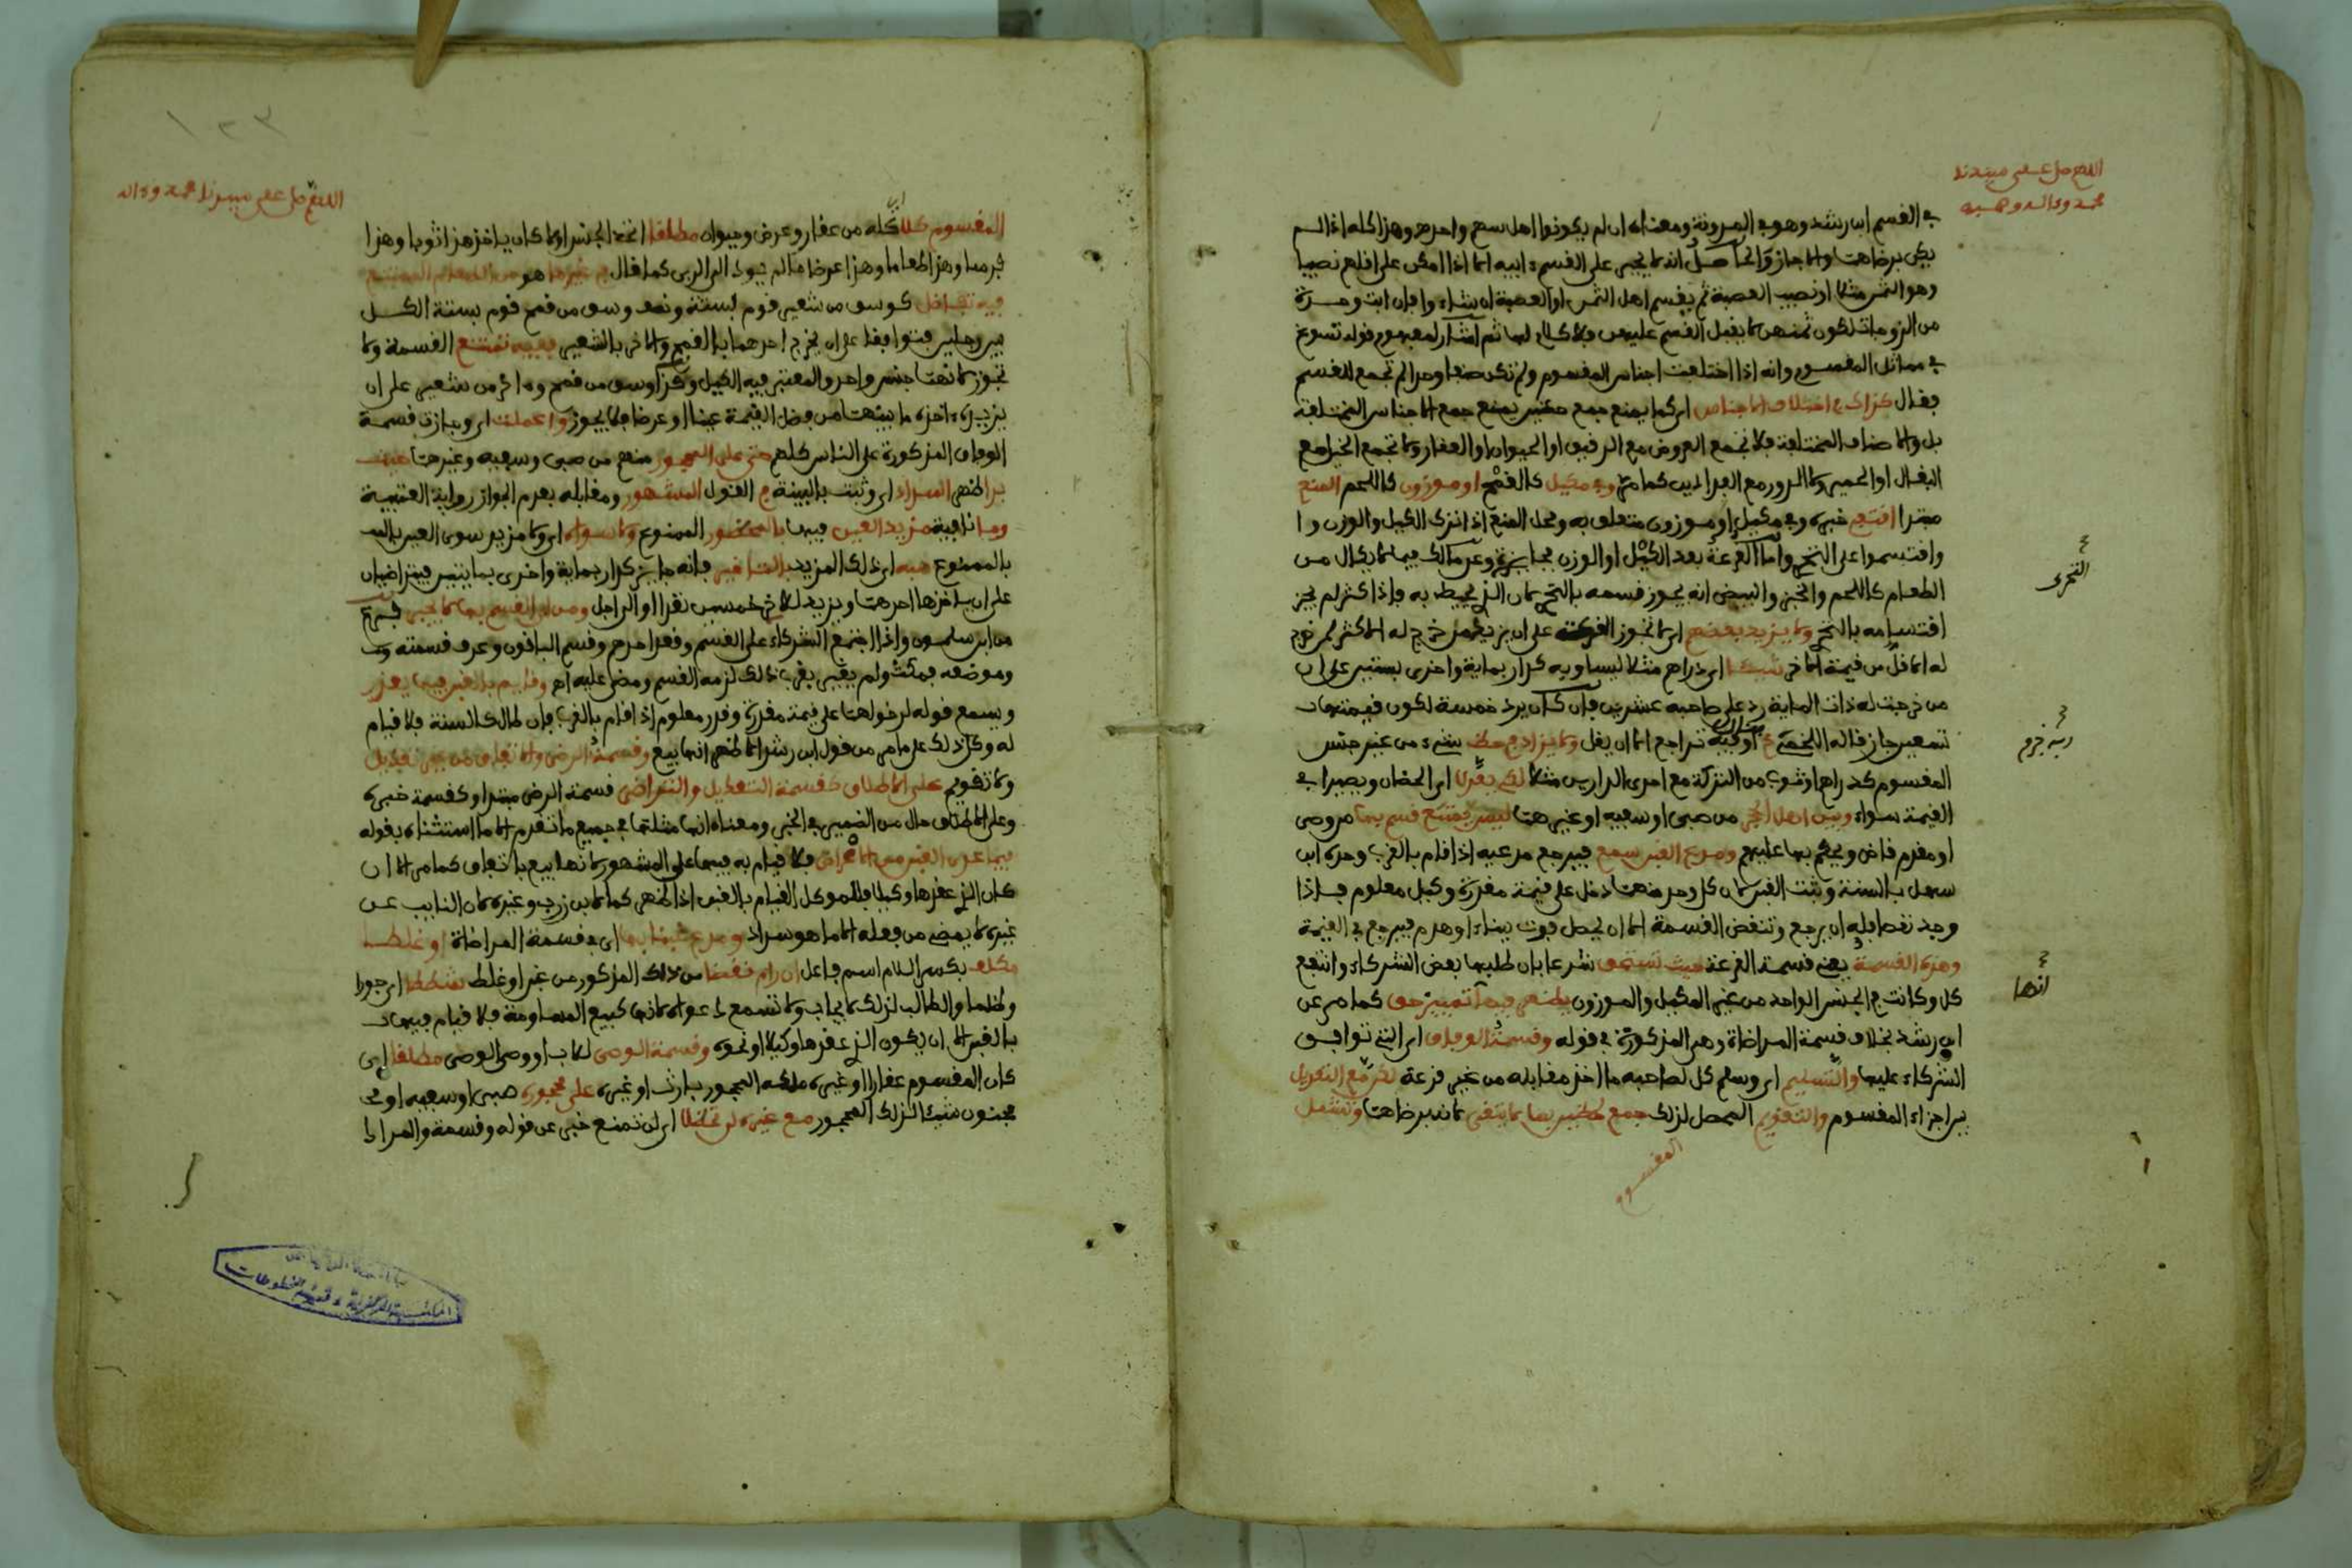 اللهم صل على سيدنا
محمد وءاله وصحبه
في القسم ابن رشد وهو في المدونة ومعناه ان لم يكونوا اهل سهم واحد وهذا كله اذا لم
يكن برضاهما والا جاز والحاصل انه لا يجبر على القسم ابيه الا اذا امكن على اقلهم نصيبا
وهو الثمن مثلا او نصيب العصبة ثم يقسم اهل الثمن او العصبة ان شاءوا فان ابت وحدة
من الزوجات لكون ثمنهن لا يقبل القسم عليهن فلا كلام لها ثم اشار لمفهوم قوله تسوغ
في مماثل المقسوم وانه اذا اختلفت اجناس المقسوم ولم تكن صنفا واحدا لم تجمع للقسم
فقال كذاك في اختلاف الاجناس اي كما يمنع جمع حظين يمنع جمع الاجناس المختلفة
بل والاصناف المختلفة فلا تجمع العروض مع الرقيق او الحيوان او العقار ولا تجمع الخيل مع
البغال او الحمير ولا الدور مع الفدادين كما مر وفي مكيل كالقمح او موزون كاللحم المنع
مبتدا اقتفي خبره وفي مكيل او موزون متعلق به ومحل المنع اذا ترك الكيل والوزن
واقتسموا على التحري واما القرعة بعد الكيل او الوزن وعن مالك فيما لا يكال من
الطعام كاللحم والخبز والبيض انه يجوز قسمه بالتحري لان الذي يحيط به فاذا كثر لم يجز
اقتسامه بالتحري ولا يزيد بعضهم اي لا تجوز القرعة على ان يزيد من خرج له الاكثر لمن خرج
له الاقل من قيمة الاخر شيئا اي دراهم مثلا ليساويه كدار بماية واخرى بستين على ان
من خرجت له ذات الماية رد على صاحبه عشرين فان كان يرد خمسة لكون قيمتها
تسعين جاز قاله اللخمي تراجع الا ان يقل ولا يزاد في حظ شيء من غير جنس
المقسوم كدراهم او ثوب من التركة مع احدى الدارين مثلا لكي يعدلا اي الحظان ويصيرا في
القيمة سواء وبين اهل الحجر من صبي او سفيه او غيرهما ليس يمتنع قسم بها من وصي
او مقدم قاض ويحكم بها عليهم ومدعي الغبن سمع فيرجع مدعيه اذا قام بالقرب وحده ابن
سهل بالسنة وثبت الغبن لان كل واحد منهما دخل على قيمة مقدرة وكيل معلوم فاذا
وجد نقصا فله ان يرجع وتنقض القسمة الا ان يحصل فوت ببناء او هدم فيرجع في القيمة
وهذه القسمة يعني قسمة القرعة حيث تستحق شرعا بان طلبها بعض الشركاء وانتفع
كل وكانت في الجنس الواحد من غير المكيل والموزون يظهر فيها تمييز حق كما مر عن
ابن رشد بخلاف قسمة المراضاة وهي المذكورة في قوله وقسمة الوفاق اي التي توافق
الشركاء عليها والتسليم اي وسلم كل لصاحبه ما اخذ مقابله من غير قرعة لكن مع التعديل
بين اجزاء المقسوم والتقويم المحصل لذلك جمع لحظين بها لا يتقى لانه برضاهما وتشمل
المقسوم
التحري
انها
١٢٣
اللهم صل على سيدنا محمد وءاله
المقسوم كلا اي كله من عقار وعرض وحيوان مطلقا اتحد الجنس او لا كان ياخذ هذا ثوبا وهذا
فرسا وهذا طعاما وهذا عرضا ما لم يؤد الى الربى كما قال في غير ما هو من الطعام الممتنع
فيه تفاضل كوسق من شعير قوم بستة ونصف وسق من قمح قوم بستة الكل
بين رجلين فتوافقا على ان يخرج احدهما بالقمح والاخر بالشعير ففيه تمتنع القسمة ولا
تجوز لانهما جنس واحد والمعتبر فيه الكيل وكذا وسق من قمح واخر من شعير على ان
يزيد ءاخذه ما بينهما من فضل القيمة عينا او عرضا فلا يجوز واعملت اي وجازت قسمة
الوفاق المذكورة على الناس كلهم حتى على المحجور منهم من صبي وسفيه وغيرهما حيث
بدا ظهر السداد اي وثبت بالبينة في القول المشهور ومقابله بعدم الجواز رواية العتبية
وما مزيد العين فيها بالمحظور الممنوع ولا سواه اي ولا مزيد سوى العين بالـ
بالممنوع هبه اي ذلك المزيد بالتاخير فانه جايز كدار بماية واخرى بمايتين فيتراضيان
على ان ياخذها احدهما ويزيد للاخر خمسين نقدا او الى اجل ومن ابى القسم بها لا يجبر
من ابن سلمون واذا اجتمع الشركاء على القسم وقعد احدهم وقسم الباقون وعرف قسمته
وموضعه فمكث ولم يغير بقرب ذلك لزمه القسم ومضى عليه اهـ وقايم بالغبن فيها يعذر
ويسمع قوله لدخولهما على قيمة مقدرة وقدر معلوم اذ اقام بالقرب فان طال كالسنة فلا قيام
له وكذلك على ما مر من قول ابن رشد الاظهر انها بيع وقسمة الرضى والاتفاق من غير تعديل
ولا تقويم على الاطلاق كقسمة التعديل والتراضي قسمة الرضى مبتدا وكقسمة خبره
وعلى الاطلاق حال من الضمير في الخبر ومعناه انها مثلها في جميع ما تقدم الا ما استثناه بقوله
فيما عدى الغبن من الاغراض فلا قيام به فيها على المشهور لانها بيع باتفاق كما مر الا ان
كان الذي عقدها وكيلا فللموكل القيام بالغبن اذا ظهر كما لابن زرب وغيره لان النايب عن
غيره لا يمضي من فعله الا ما هو سداد ومدع غبنا بها اي في قسمة المراضاة او غلطا
مكلف بكسر اللام اسم فاعل ان رام نقضا من ذلك المذكور من غبن او غلط شططا اي جورا
وظلما والطالب لذلك لا يجاب ولا تسمع دعواه لانها كبيع المساومة فلا قيام فيها
بالغبن الا ان يكون الذي عقدها وكيلا او نحوه وقسمة الوصي لاب او وصي الوصي مطلقا اي
كان المقسوم عقارا او غيره ملكه المحجور بارث او غيره على محجوره صبي او سفيه او
مجنون شيئا لذلك المحجور مع غيره لن تحظلا اي لن تمنع خبر عن قوله وقسمة والمراد
المكتبة المركزية - قسم المخطوطات